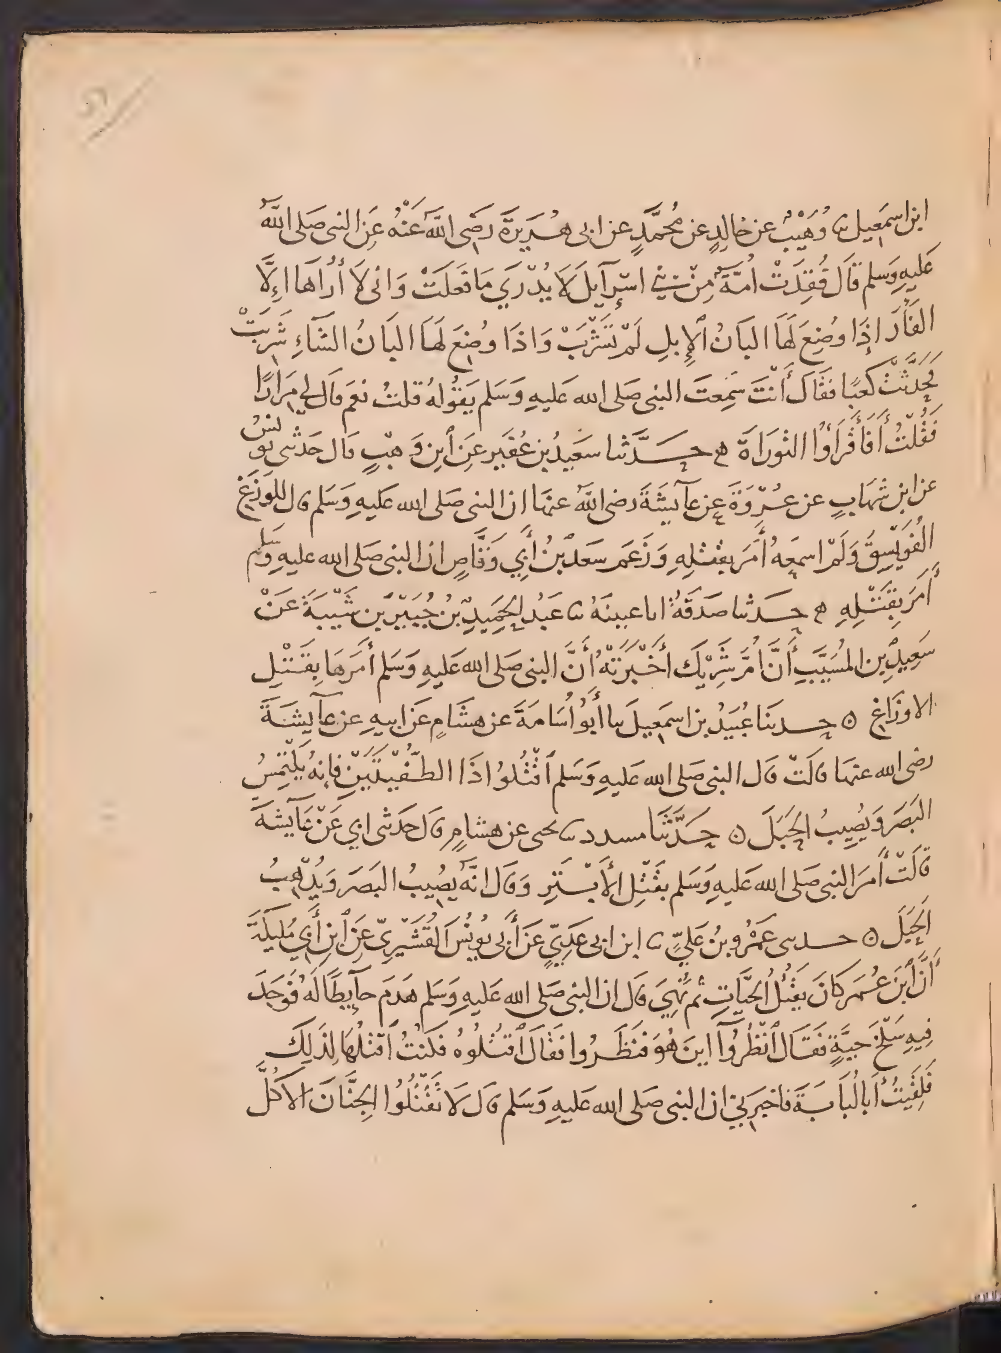 ابن اسمعيل ثنا وُهَيْبٌ عن خالدٍ عن مُحمَّدٍ عن ابي هُرَيرَةَ رَضى اللهُ عَنْهُ عَنِ النبى صَلى اللهُ
عَليهِ وَسَلم قَالَ فُقِدَتْ اُمَّةٌ مِنْ بَنِي اسْرَآيلَ لَا يُدْرَي مَا فَعَلَتْ وَانى لَا أُرَاهَا اِلَّا
الفَأرَ إذَا وضِعَ لَهَا البَانُ الإبِلِ لَمْ تَشْرَبْ وَاذَا وضِعَ لَهَا البَانُ الشَّاءِ شَرِبَتْ
فَحَدَّثْتُ كَعبًا فقَالَ أَنْتَ سَمِعتَ النبى صَلى الله عَليهِ وَسَلم يَقُولُهُ قلتُ نعَم قَالَ لي مِرَارًا
فَقُلْتُ أَفَأَقْرَأُ التورَاةَ ۞ حَدَّثنا سَعِيدُ بن عُفَيرٍ عَنِ ابنِ وَهْبٍ قال حَدثنى يونسُ
عن ابنِ شِهَابٍ عن عُرْوَةَ عن عَآيشَةَ رضى اللهُ عنهَا ان النبى صَلى الله عَليهِ وَسَلم قال للوَزَغِ
الفُوَيْسِقُ وَلَمْ اسمَعهُ أَمَرَ بِقَتْلِهِ وَزَعَم سَعدُ بْنُ أَبِي وَقَّاصٍ ان النبى صَلى الله عليهِ وَسَلم
أَمَرَ بِقَتْلِهِ ۞ حَدثنا صَدَقَةُ انا ابن عيينة ثنا عَبدُ الحَمِيدِ بْنُ جُبَيْرِ بنِ شَيْبَةَ عَنْ
سَعِيدِ بنِ المُسَيَّبِ أَنَّ اُمَّ شَرِيْكٍ أَخْبَرَتْهُ أَنَّ النبى صَلى الله عَليهِ وَسَلم أَمَرَهَا بِقَتْلِ
الاوزَاغِ ۞ حَدثنَا عُبَيدُ بن اسمَعيلَ ثنا أَبُو أُسَامَةَ عن هِشَامٍ عَن ابيهِ عن عَآيشَةَ
رضى الله عنهَا قالَتْ قال النبى صَلى الله عَليهِ وَسَلم اقْتُلُوا ذَا الطُّفْيَتَيْنِ فإِنهُ يَلْتَمِسُ
البَصَرَ وَيصِيبُ الحَبَلَ ۞ حَدَّثَنَا مسدد ثنا يحيى عن هشامٍ قَال حَدثنى ابي عَنْ عَآيشَةَ
قَالَتْ أَمَرَ النبى صَلى الله عَليهِ وَسَلم بقَتْلِ الأَبْتَرِ وَقَال انَّهُ يصِيبُ البَصَرَ وَيُذْهِبُ
الحَبَلَ ۞ حدثنى عَمْرُو بنُ عَلِيٍّ ثنا ابن ابى عَدِيٍّ عَنْ أَبى يُونُسَ القُشَيْرِيِّ عَنِ ابنِ أَبِي مُلَيْكَةَ
أَنَّ ابنَ عُمَرَ كَانَ يَقْتُلُ الحَيَّاتِ ثم نَهَيَ قَال ان النبى صَلى الله عَليهِ وَسَلم هَدَمَ حآيِطًا لَهُ فَوَجَدَ
فِيهِ سَلْخَ حَيَّةٍ فَقَالَ انْظُرُوآ اينَ هُوَ فَنَظَرُوا فقَالَ اقتُلُوهُ فَكنتُ اقتُلُهَا لِذَلِكَ
فَلقِيتُ أَبَا لُبَابَةَ فاخبَرَنِيْ ان النبى صَلى الله عَليهِ وَسَلم قال لَا تَقْتُلُوا الجِنَّانَ الاكُلَّ